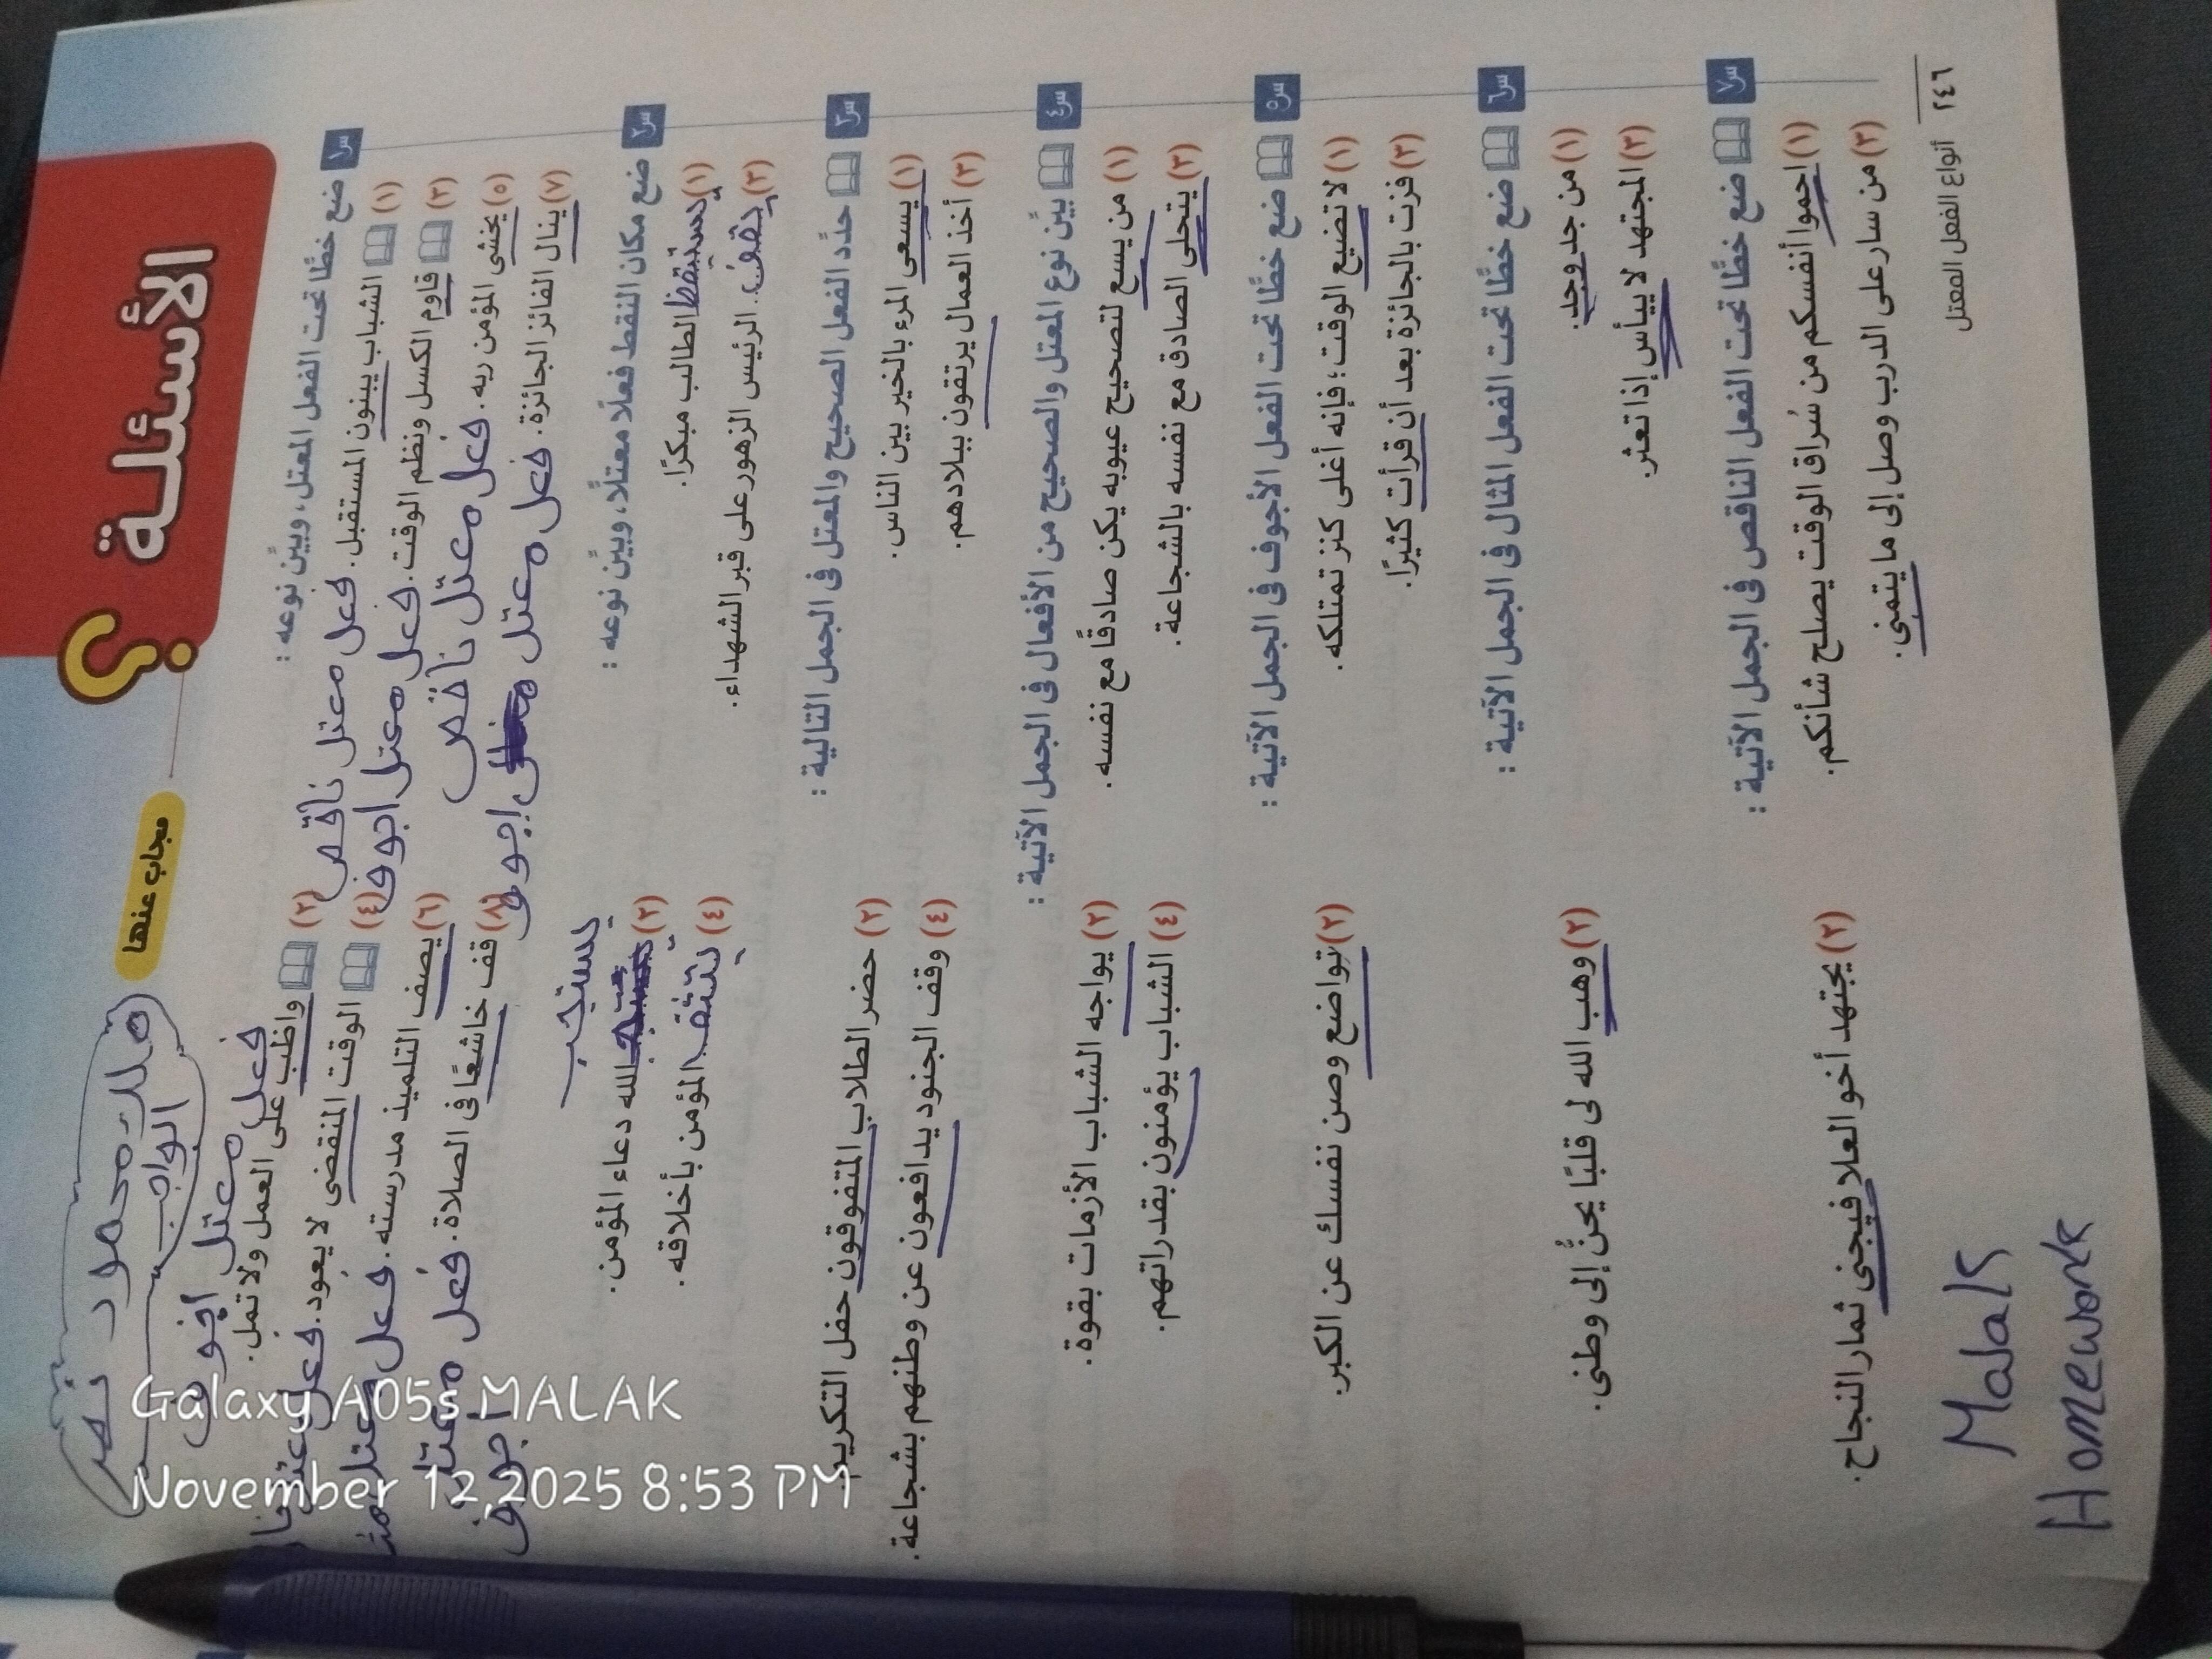 ملك محمود نصر
الواجب
الأسئلة ؟
مجاب عنها
س١ ضع خطًّا تحت الفعل المعتل، وبيِّن نوعه :
(١) الشباب يبنون المستقبل. فعل معتل ناقص
(٢) واظب على العمل ولا تمل. فعل معتل اجوف
(٣) قاوم الكسل ونظم الوقت. فعل معتل اجوف
(٤) الوقت المنقضى لا يعود. فعل
(٥) يخشى المؤمن ربه. فعل معتل ناقص
(٦) يصف التلميذ مدرسته. فعل معتل
(٧) ينال الفائز الجائزة. فعل معتل اجوف
(٨) قف خاشعًا فى الصلاة. فعل معتل اجوف
س٢ ضع مكان النقط فعلًا معتلًا، وبيِّن نوعه :
(١) يستيقظ الطالب مبكرًا.
(٢) يستجب الله دعاء المؤمن.
(٣) يقف الرئيس الزهور على قبر الشهداء.
(٤) المؤمن بأخلاقه.
س٣ حدِّد الفعل الصحيح والمعتل فى الجمل التالية :
(١) يسعى المرء بالخير بين الناس.
(٢) حضر الطلاب المتفوقون حفل التكريم.
(٣) أخذ العمال يرتقون ببلادهم.
(٤) وقف الجنود يدافعون عن وطنهم بشجاعة.
س٤ بيِّن نوع المعتل والصحيح من الأفعال فى الجمل الآتية :
(١) من يسع لتصحيح عيوبه يكن صادقًا مع نفسه.
(٢) يواجه الشباب الأزمات بقوة.
(٣) يتحلى الصادق مع نفسه بالشجاعة.
(٤) الشباب يؤمنون بقدراتهم.
س٥ ضع خطًّا تحت الفعل الأجوف فى الجمل الآتية :
(١) لا تضيع الوقت؛ فإنه أغلى كنز تمتلكه.
(٢) تواضع وصن نفسك عن الكبر.
(٣) فزت بالجائزة بعد أن قرأت كثيرًا.
س٦ ضع خطًّا تحت الفعل المثال فى الجمل الآتية :
(١) من جد وجد.
(٢) وهب الله لى قلبًا يحنُّ إلى وطنى.
(٣) المجتهد لا ييأس إذا تعثر.
س٧ ضع خطًّا تحت الفعل الناقص فى الجمل الآتية :
(١) احموا أنفسكم من سُراق الوقت يصلح شأنكم.
(٢) يجتهد أخو العلا فيجنى ثمار النجاح.
(٣) من سار على الدرب وصل إلى ما يتمنى.
٢٤٦ أنواع الفعل المعتل
Malak
Homework
Galaxy A05s MALAK
November 12,2025 8:53 PM